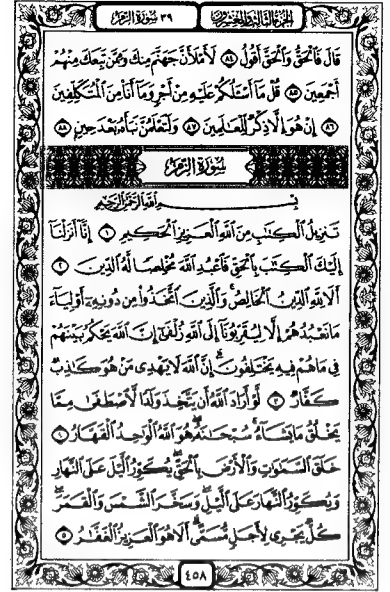 الجزء الثالث والعشرون ٣٩ سورة الزمر
قَالَ فَالْحَقُّ وَالْحَقَّ أَقُولُ ٨٤ لَأَمْلَأَنَّ جَهَنَّمَ مِنكَ وَمِمَّن تَبِعَكَ مِنْهُمْ
أَجْمَعِينَ ٨٥ قُلْ مَا أَسْـَٔلُكُمْ عَلَيْهِ مِنْ أَجْرٍ وَمَا أَنَا مِنَ الْمُتَكَلِّفِينَ
٨٦ إِنْ هُوَ إِلَّا ذِكْرٌ لِّلْعَٰلَمِينَ ٨٧ وَلَتَعْلَمُنَّ نَبَأَهُ بَعْدَ حِينٍ ٨٨
سُورَةُ الزُّمَرِ
بِسْمِ اللَّهِ الرَّحْمَٰنِ الرَّحِيمِ
تَنزِيلُ الْكِتَٰبِ مِنَ اللَّهِ الْعَزِيزِ الْحَكِيمِ ١ إِنَّا أَنزَلْنَا
إِلَيْكَ الْكِتَٰبَ بِالْحَقِّ فَاعْبُدِ اللَّهَ مُخْلِصًا لَّهُ الدِّينَ ٢
أَلَا لِلَّهِ الدِّينُ الْخَالِصُ وَالَّذِينَ اتَّخَذُوا مِن دُونِهِ أَوْلِيَاءَ
مَا نَعْبُدُهُمْ إِلَّا لِيُقَرِّبُونَا إِلَى اللَّهِ زُلْفَىٰ إِنَّ اللَّهَ يَحْكُمُ بَيْنَهُمْ
فِي مَا هُمْ فِيهِ يَخْتَلِفُونَ إِنَّ اللَّهَ لَا يَهْدِي مَنْ هُوَ كَٰذِبٌ
كَفَّارٌ ٣ لَّوْ أَرَادَ اللَّهُ أَن يَتَّخِذَ وَلَدًا لَّاصْطَفَىٰ مِمَّا
يَخْلُقُ مَا يَشَاءُ سُبْحَٰنَهُ هُوَ اللَّهُ الْوَٰحِدُ الْقَهَّارُ ٤
خَلَقَ السَّمَٰوَٰتِ وَالْأَرْضَ بِالْحَقِّ يُكَوِّرُ الَّيْلَ عَلَى النَّهَارِ
وَيُكَوِّرُ النَّهَارَ عَلَى الَّيْلِ وَسَخَّرَ الشَّمْسَ وَالْقَمَرَ
كُلٌّ يَجْرِي لِأَجَلٍ مُّسَمًّى أَلَا هُوَ الْعَزِيزُ الْغَفَّٰرُ ٥
٤٥٨